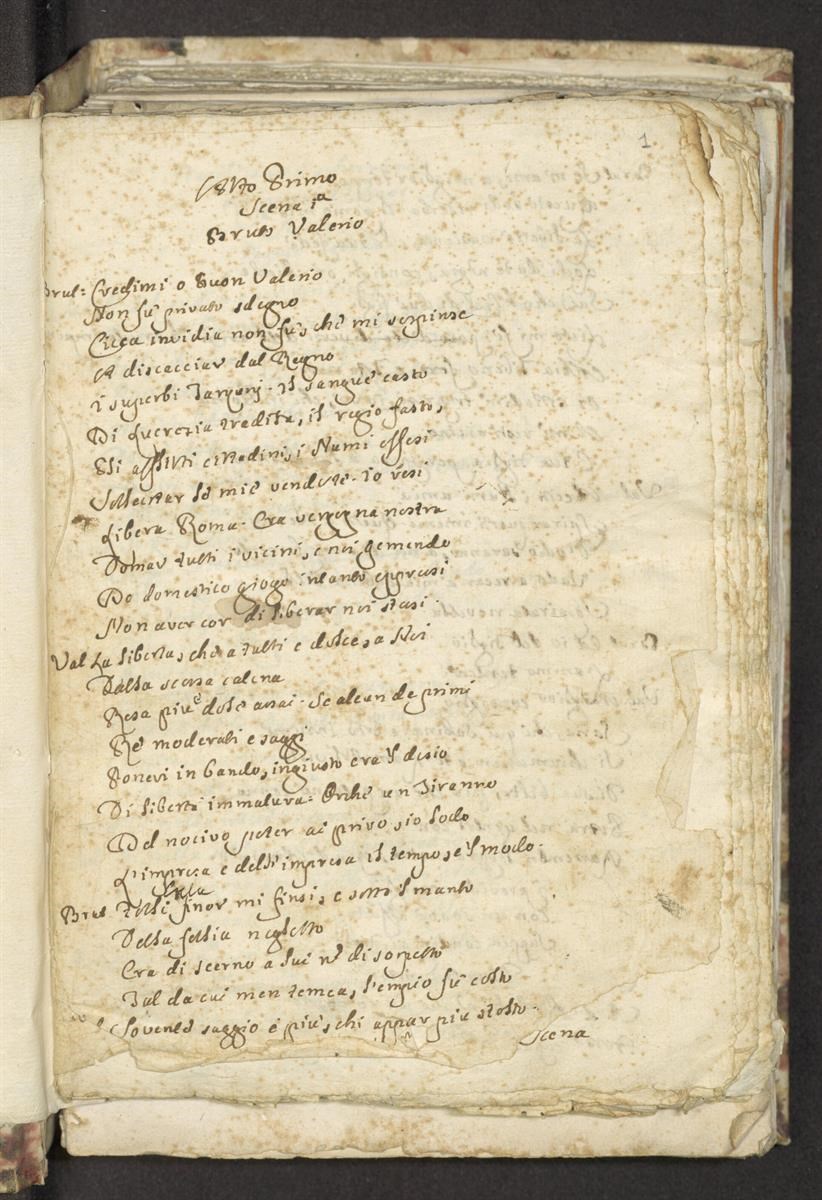 1
Atto Primo
Scena 1a
Bruto Valerio
Brut: Credimi o Buon Valerio
Non fù privato sdegno
Cieca invidia non fù, chè mi sospinse
A discacciar dal Regno
i superbi Tarquinj. Il sangue casto
Di Lucrezia tradita, il regio fasto,
Gli afflitti cittadini, i Numi offesi
Vollecitar le mie vendete. io resi
Libera Roma. Era vergogna nostra
Domar tutti i vicini, e noi gemendo
Do domestico giogo intanto oppressi
Non aver cor di liberar noi stessi.
Val La libertà, che a tutti è dolce, a Noi
Dalla scossa catena
Resa più dolce assai. Se alcun de primi
Rè moderati e saggi
Ponevi in bando, ingiusto era 'l desio
Di libertà immatura: Orchè un Tiranno
Del nocivo poter ai privo, io lodo
L'impresa e dell'impresa il tempo, e 'l modo.
Brut finor mi finsi, e sotto 'l manto
Della follia negletto
Era di scerno a lui nò di sospetto
Tal da cui men temea, l'empio fù colto
Sovente saggio è più, chi appar più stolto.
Scena